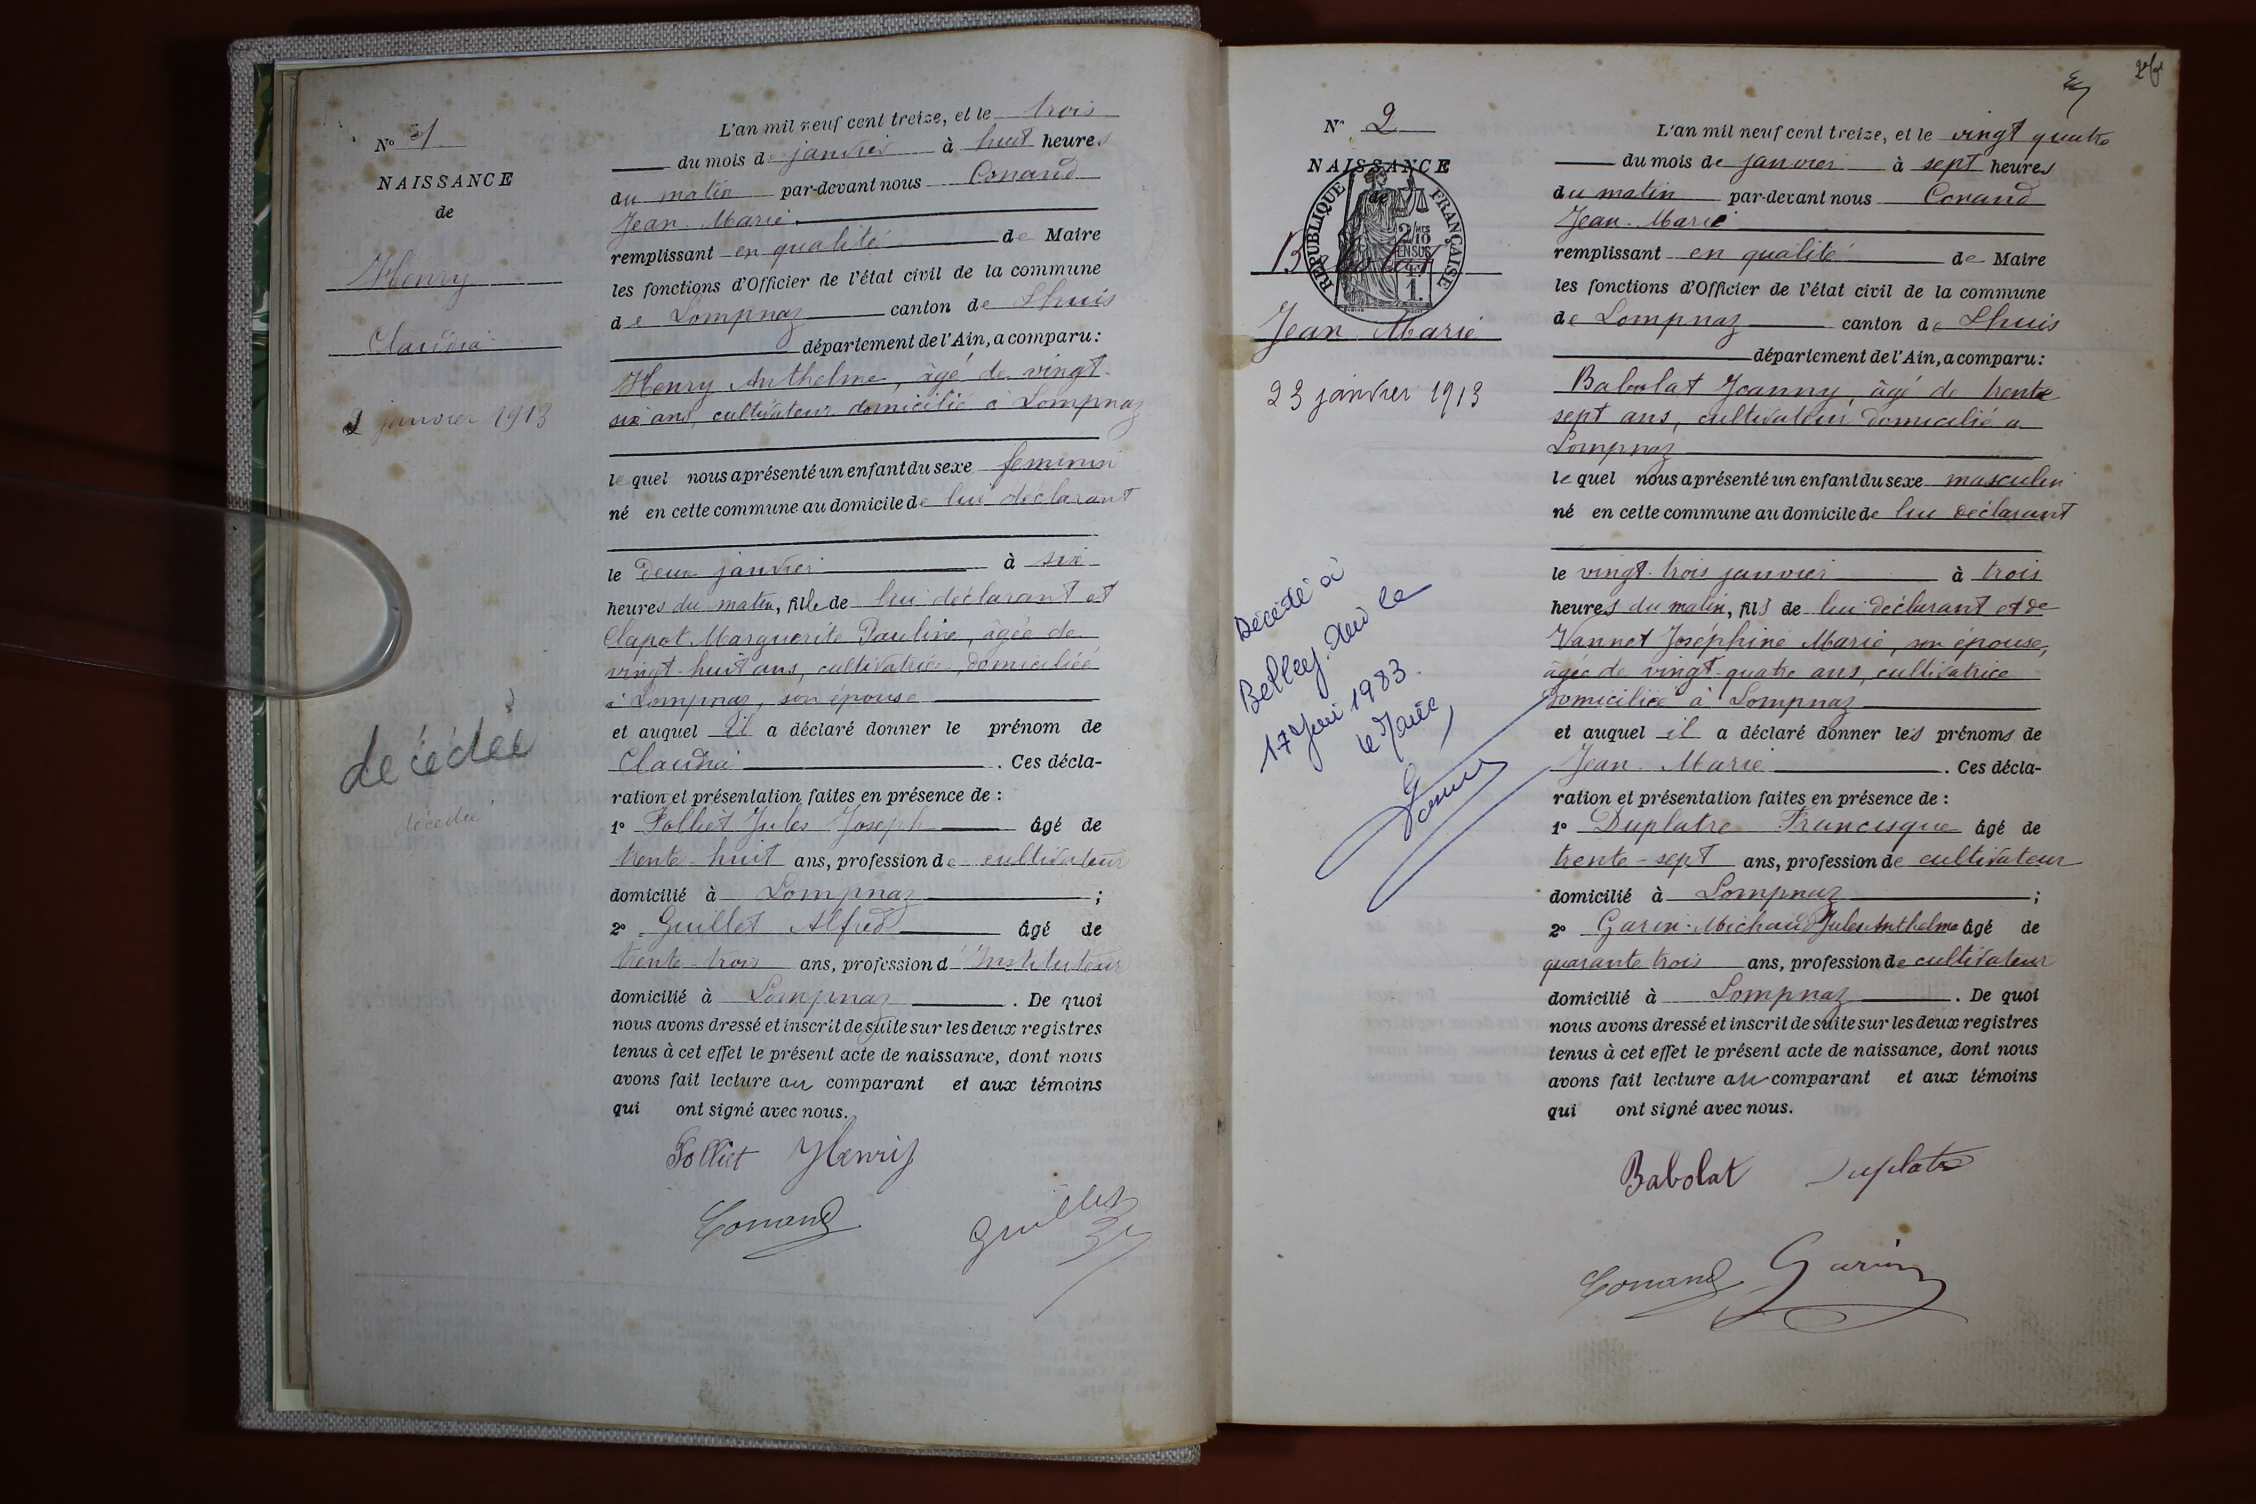 N° 1
NAISSANCE
de
Henry
Claudia
2 janvier 1913
décédée
décédée
L'an mil neuf cent treize, et le trois
du mois de janvier à huit heures
du matin par-devant nous Conand
Jean-Marie
remplissant en qualité de Maire
les fonctions d'Officier de l'état civil de la commune
de Lompnaz canton de Lhuis
département de l'Ain, a comparu:
Henry Anthelme, âgé de vingt-
six ans, cultivateur domicilié à Lompnaz
le quel nous a présenté un enfant du sexe feminin
né en cette commune au domicile de lui déclarant
le deux janvier à six
heures du matin, fille de lui déclarant et
Clapot Marguerite Pauline, âgée de
vingt-huit ans, cultivatrice, domiciliée
à Lompnaz, son épouse
et auquel il a déclaré donner le prénom de
Claudia. Ces décla-
ration et présentation faites en présence de :
1° Folliet Jules Joseph âgé de
trente-huit ans, profession de cultivateur
domicilié à Lompnaz ;
2° Guillet Alfred âgé de
trente-trois ans, profession d'Instituteur
domicilié à Lompnaz. De quoi
nous avons dressé et inscrit de suite sur les deux registres
tenus à cet effet le présent acte de naissance, dont nous
avons fait lecture au comparant et aux témoins
qui ont signé avec nous.
Folliet Henry
Conand Guillet
N° 2
NAISSANCE
de
RÉPUBLIQUE FRANÇAISE
2/10
EN SUS
1.
Babolat
Jean-Marie
23 janvier 1913
Décédé à
Belley-Ain le
17 Juin 1983.
Le Maire,
L'an mil neuf cent treize, et le vingt quatre
du mois de janvier à sept heures
du matin par-devant nous Conand
Jean-Marie
remplissant en qualité de Maire
les fonctions d'Officier de l'état civil de la commune
de Lompnaz canton de Lhuis
département de l'Ain, a comparu:
Babolat Joanny, âgé de trente
sept ans, cultivateur domicilié a
Lompnaz
le quel nous a présenté un enfant du sexe masculin
né en cette commune au domicile de lui déclarant
le vingt-trois janvier à trois
heures du matin, fils de lui déclarant et de
Vannet Joséphine Marie, son épouse,
âgée de vingt-quatre ans, cultivatrice
domiciliée à Lompnaz
et auquel il a déclaré donner les prénoms de
Jean-Marie. Ces décla-
ration et présentation faites en présence de :
1° Duplatre Francisque âgé de
trente-sept ans, profession de cultivateur
domicilié à Lompnaz ;
2° Garin-Michaud Jules Anthelme âgé de
quarante trois ans, profession de cultivateur
domicilié à Lompnaz. De quoi
nous avons dressé et inscrit de suite sur les deux registres
tenus à cet effet le présent acte de naissance, dont nous
avons fait lecture au comparant et aux témoins
qui ont signé avec nous.
Babolat Duplatre
Conand Garin